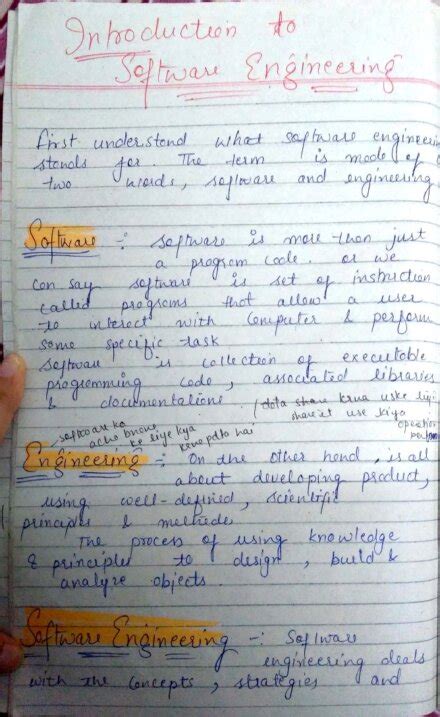 Introduction to
Software Engineering
first understand what software engineering
stands for. The term is made of
two words, software and engineering
Software :- software is more than just
a program code. or we
can say software is set of instruction
called programs that allow a user
to interact with Computer & perform
some specific task
software is collection of executable
programming code, associated libraries
& documentations. (data share krna uske liye
share it use kiya
software ko
acha banane ke liye kya
krna pdta hai
operation
perform
Engineering :- On the other hand, is all
about developing product,
using well-defined, scientific
principles & methods
The process of using knowledge
& principles to design, build &
analyze objects.
Software Engineering -: Software
engineering deals
with the concepts, strategies and